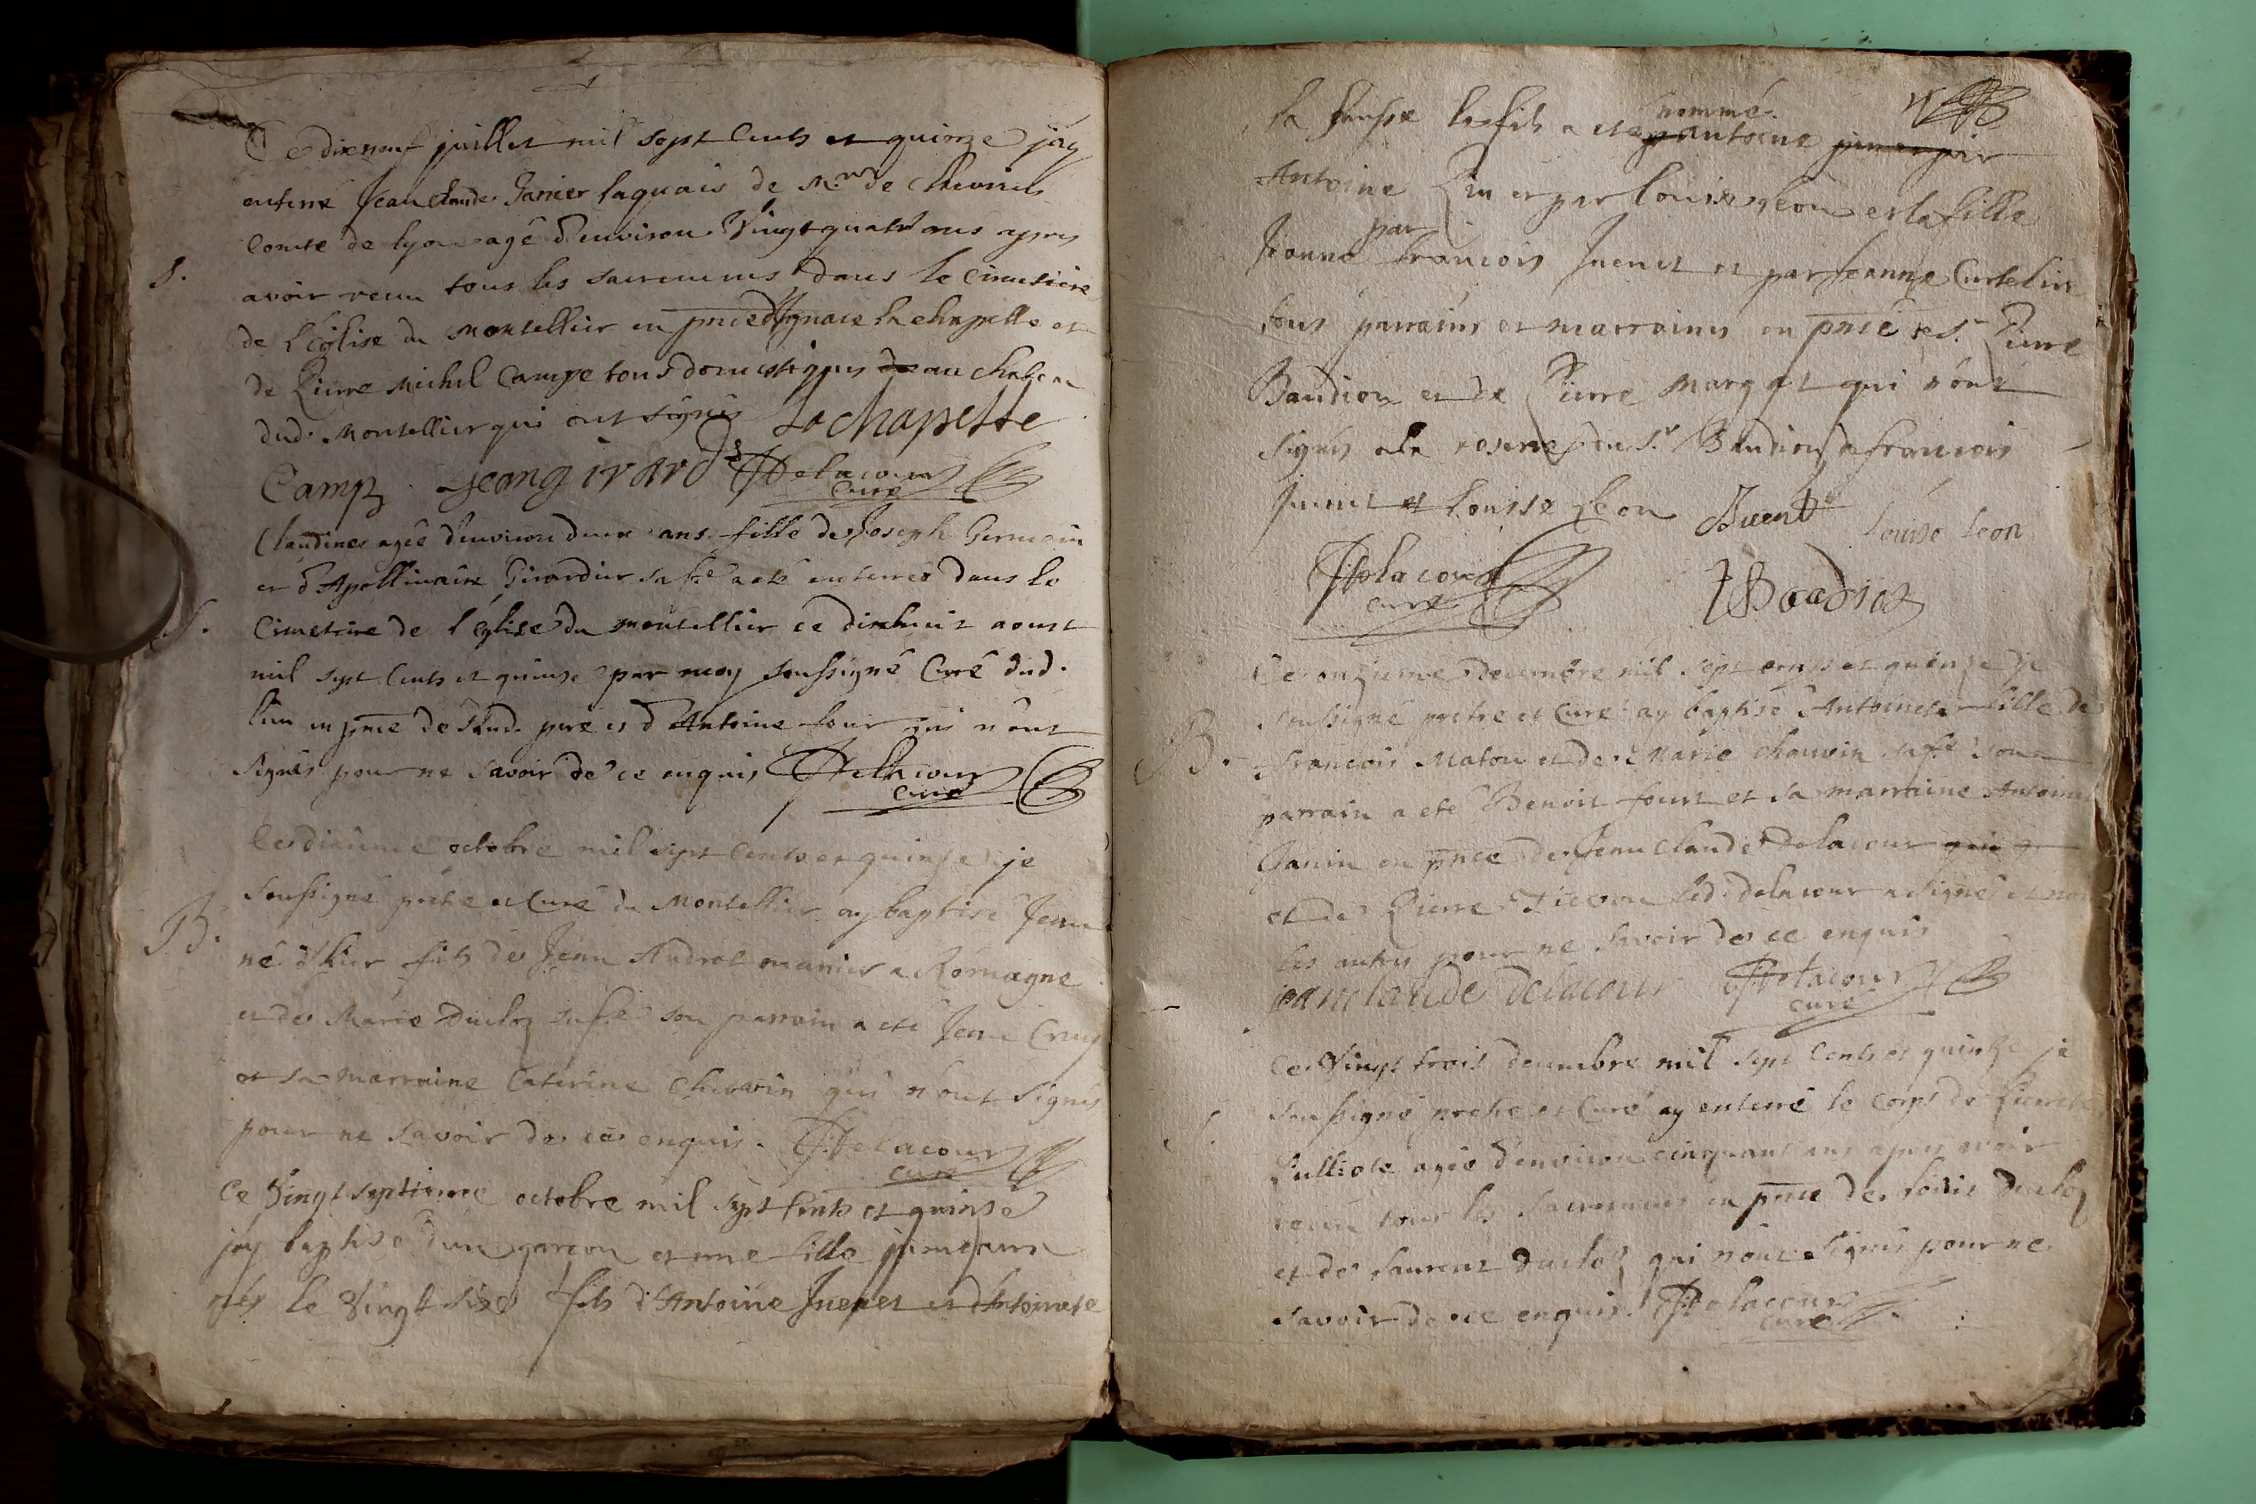 Ce dixneuf juillet mil sept cents et quinze jay
enterré Jean Claude Garnier laquais de Mr. de
Comte de lyon agé d'environ Vingt quatre ans apres
S.
avoir receu tous les sacremens dans le cimetiere
de l'église du Montellier en pnce d'Ignace la chapelle et
de Pierre Michel Campe tous domestiques au chateau
dud. Montellier qui ont signés Lachapelle
Camp Jean girard Delacour
curé
Claudine agée d'environ deux ans fille de Joseph Germain
et d'Apollinaire Girardier sa fe. a eté enterrée dans le
S.
Cimetiere de l'église du montellier ce dixhuit aoust
mil sept cents et quinze par moy soussigné Curé dud.
lieu en pnce de dud. pere et d'Antoine four qui n'ont
signés pour ne savoir de ce enquis Delacour
curé
Ce dixiéme octobre mil sept cents et quinze je
soussigné prêtre et Curé du Montellier ay baptisé Jean
B.
né d'hier fils de Jean Androt manier a Romagne
et de Marie Duclos sa fe. son parrain a eté Jean Cruy
et sa marraine Caterine Chauvin qui n'ont signés
pour ne savoir de ce enquis. Delacour
curé
Ce Vingt septieme octobre mil sept cents et quinse
jay baptisé d'un garcon et une fille jumeaux
nés le Vingt six fils d'Antoine Juenet et d'Antoinete
la le fils a eté nommé antoine par
Antoine et par louise leon et la fille
Jeanne par francois Juenet et par Jeanne Curtelin
tous parrains et marraines en pnce de Sr. Pierre
Baudion et de Pierre Margat qui n'ont
signés a la reserve du Sr. Baudion de francois
Juenet et louise leon Juenet Louise leon
Delacour
curé Boudion
Ce onzieme decembre mil sept cents et quinze je
soussigné pretre et curé ay baptisé Antoinete fille de
B.
francois Maton et de Marie Chauvin sa fe. son
parrain a eté Benoit fourt et sa marraine Antoinete
Janin en pnce de Jean Claude Delacour
et de Pierre led. delacour a signé et non
les autres pour ne savoir de ce enquis
jean claude delacour Delacour
curé
Ce Vingt trois decembre mil sept cents et quinze je
soussigné pretre et Curé ay enterré le corps de Pierrete
S.
agée d'environ cinquante ans apres avoir
receu tous les sacremens en pnce de louis Duclos
et de laurent Duclos qui n'ont signés pour ne
savoir de ce enquis. Delacour
curé